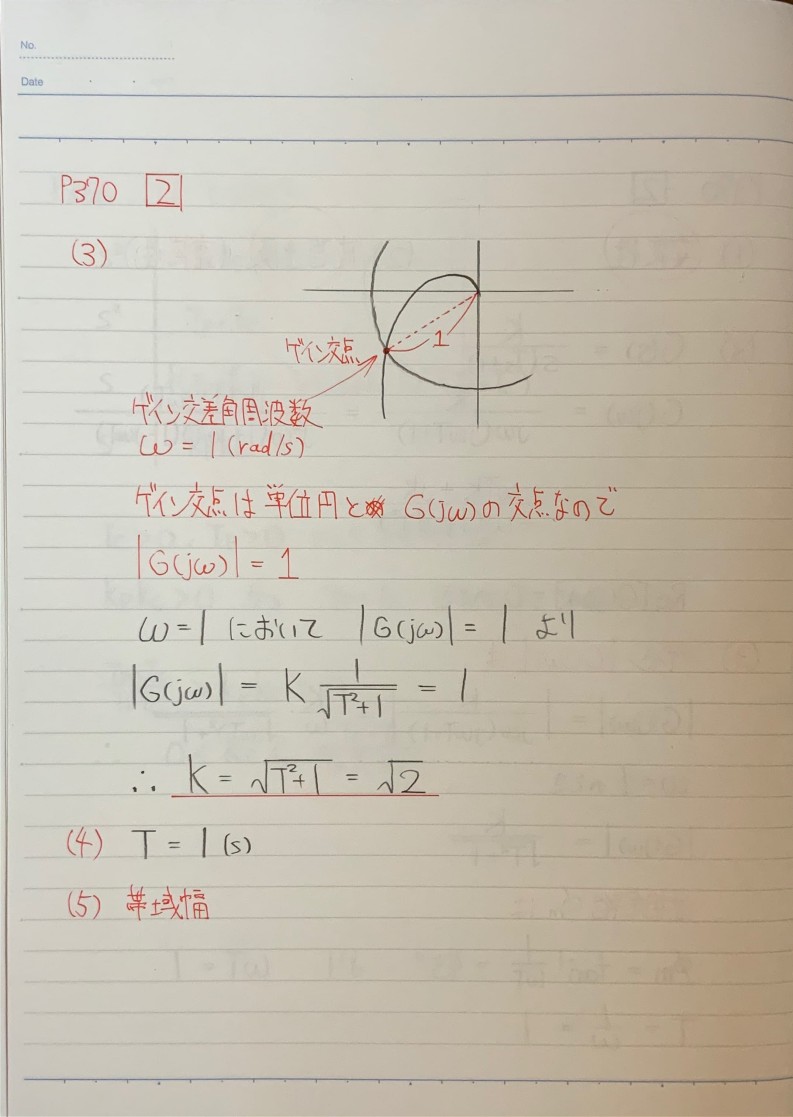 No.
Date
P370 2
(3)
ゲイン交点
1
ゲイン交差角周波数
ω = 1 (rad/s)
ゲイン交点は単位円と G(jω)の交点なので
|G(jω)| = 1
ω = 1 において |G(jω)| = 1 より
|G(jω)| = K 1/√(T²+1) = 1
∴ K = √(T²+1) = √2
(4) T = 1 (s)
(5) 帯域幅